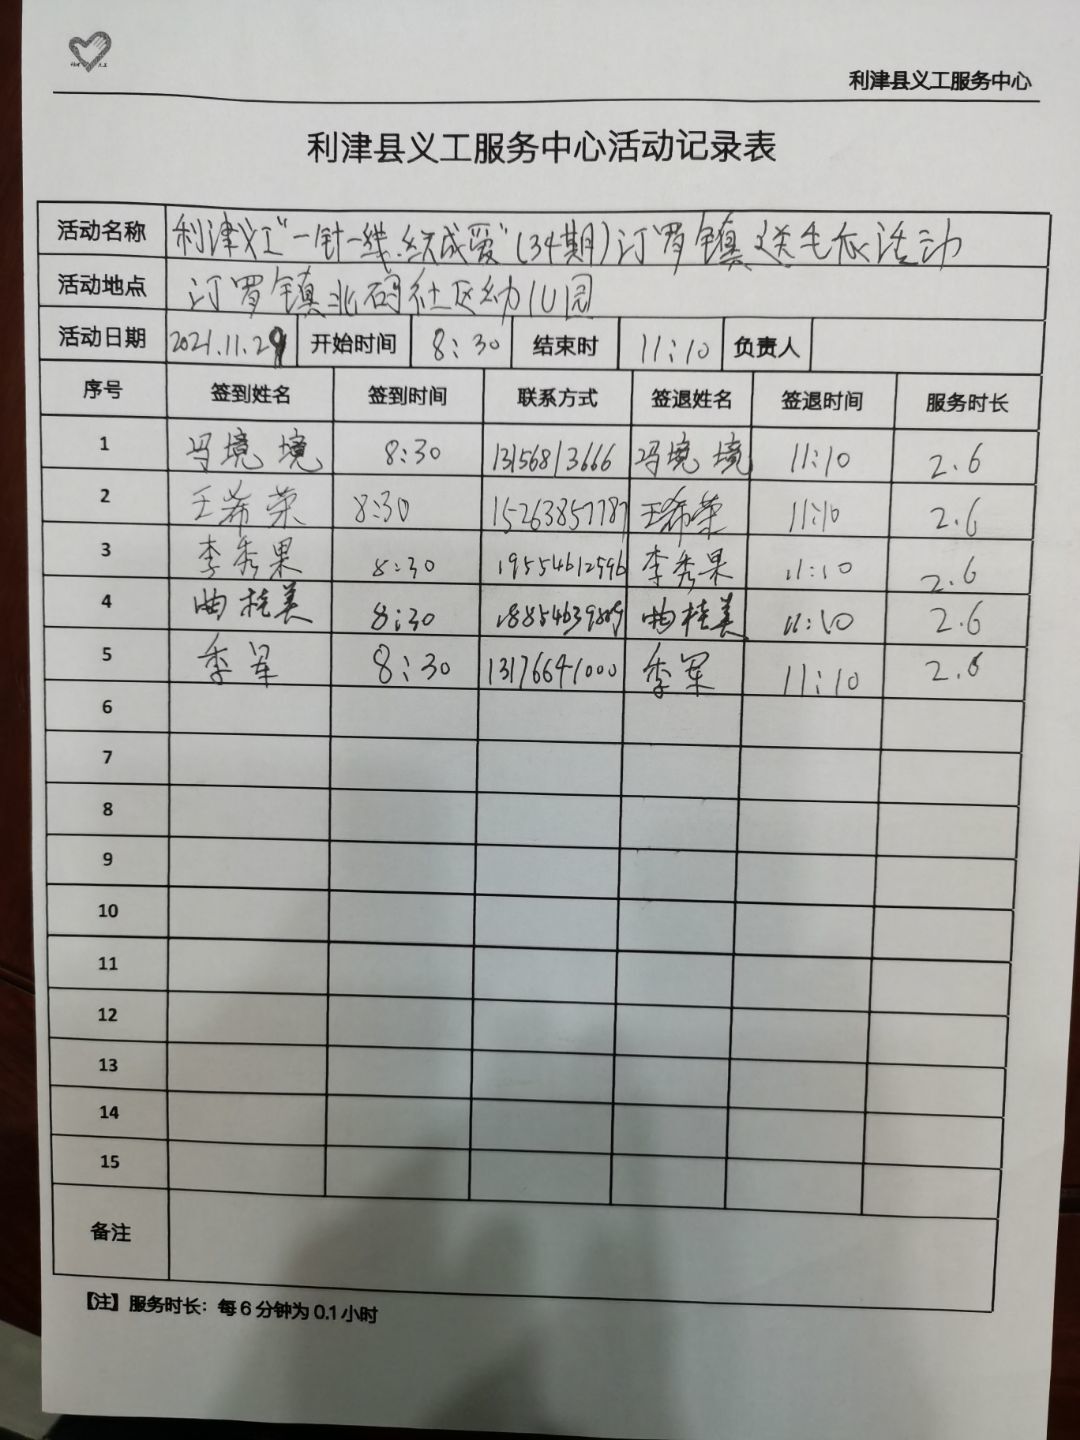 利津县义工服务中心
利津县义工服务中心活动记录表
活动名称 利津义工"一针一线.织成爱"(34期)汀罗镇送毛衣活动
活动地点 汀罗镇北码社区幼儿园
活动日期 2021.11.29 开始时间 8:30 结束时 11:10 负责人
序号 签到姓名 签到时间 联系方式 签退姓名 签退时间 服务时长
1 冯境境 8:30 13156813666 冯境境 11:10 2.6
2 王希荣 8:30 15263857787 王希荣 11:10 2.6
3 李秀果 8:30 19554612596 李秀果 11:10 2.6
4 曲桂美 8:30 曲桂美 11:10 2.6
5 季军 8:30 13176641000 季军 11:10 2.6
6
7
8
9
10
11
12
13
14
15
备注
【注】服务时长：每6分钟为0.1小时